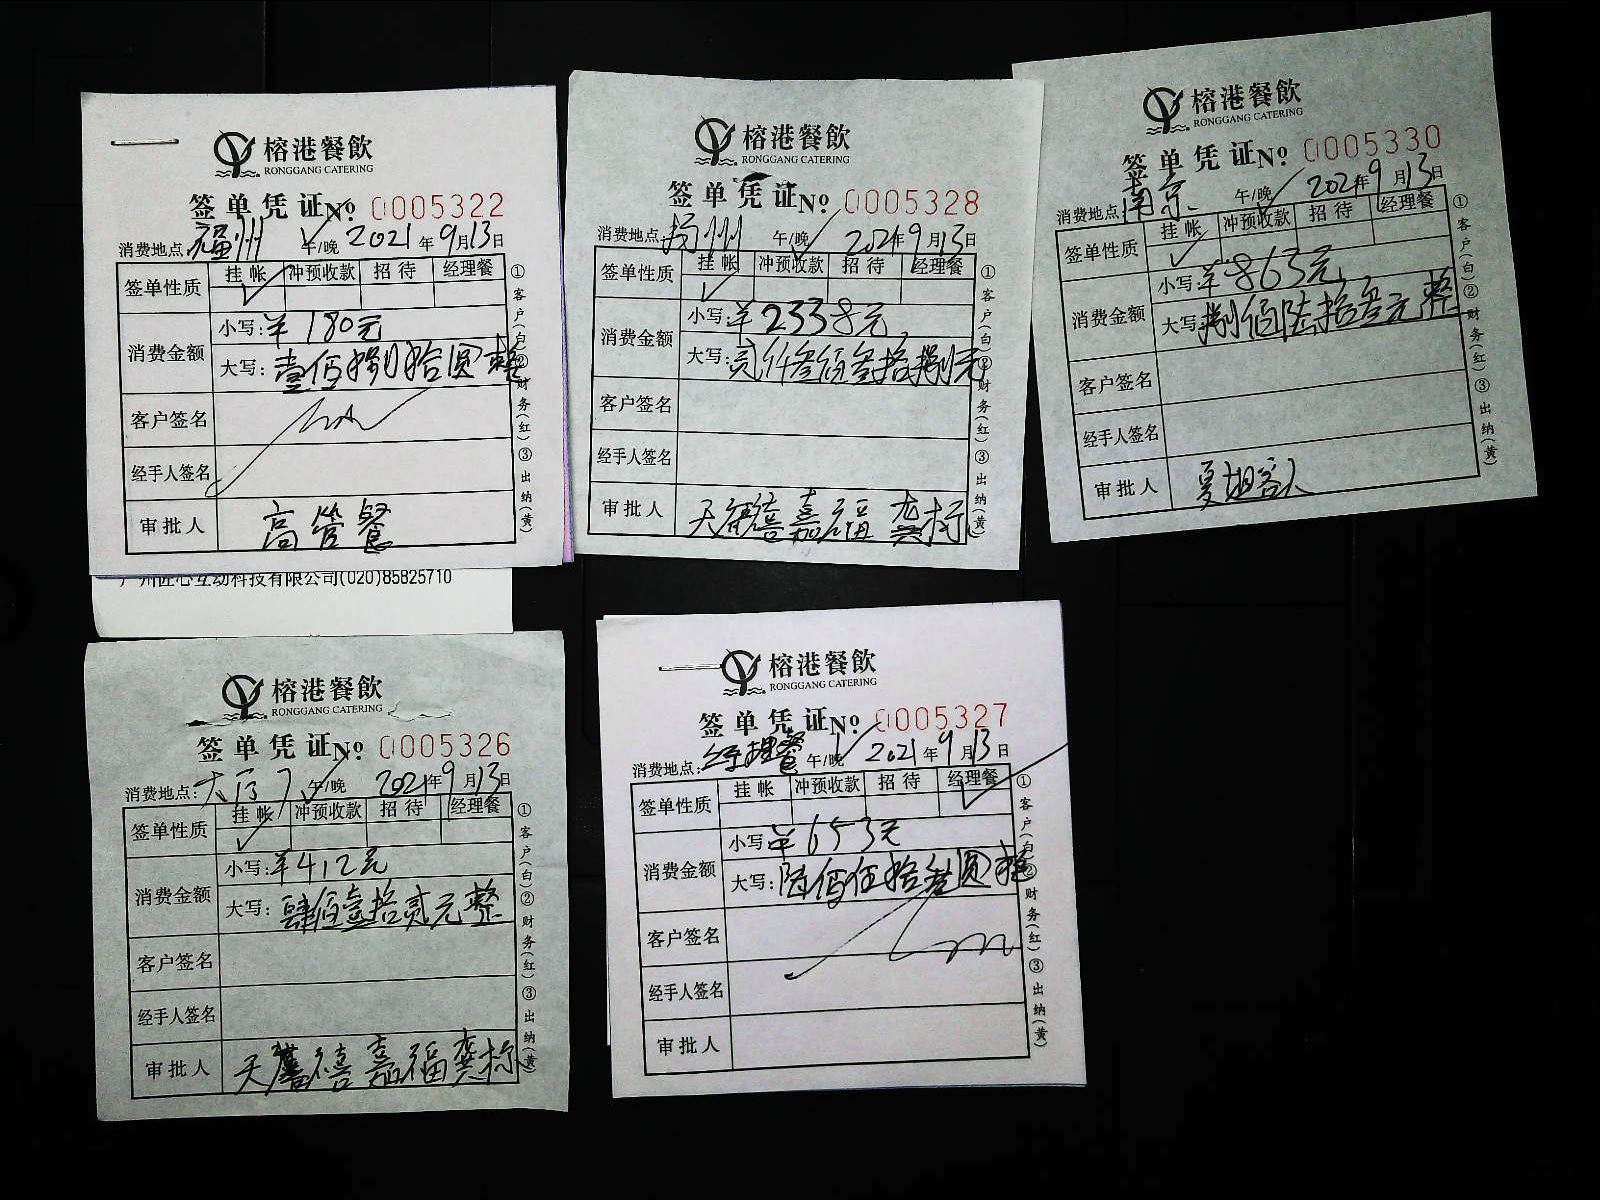 榕港餐飲
RONGGANG CATERING
签单凭证 No 0005322
消费地点: 福州 午/晚 2021年9月13日
签单性质 挂帐 冲预收款 招待 经理餐
消费金额
小写: ¥180元
大写: 壹佰捌拾圆整
客户签名
经手人签名
审批人 高管餐
①客户(白)②财务(红)③出纳(黄)
广州匠心互动科技有限公司(020)85825710
榕港餐飲
RONGGANG CATERING
签单凭证 No 0005328
消费地点: 扬州 午/晚 2021年9月13日
签单性质 挂帐 冲预收款 招待 经理餐
消费金额
小写: ¥2338元
大写: 贰仟叁佰叁拾捌元
客户签名
经手人签名
审批人 天 禧嘉福 龚
①客户(白)②财务(红)③出纳(黄)
榕港餐飲
RONGGANG CATERING
签单凭证 No 0005330
消费地点: 南京 午/晚 2021年9月13日
签单性质 挂帐 冲预收款 招待 经理餐
消费金额
小写: ¥863元
大写: 捌佰陆拾叁元整
客户签名
经手人签名
审批人 夏姐客人
①客户(白)②财务(红)③出纳(黄)
榕港餐飲
RONGGANG CATERING
签单凭证 No 0005326
消费地点: 大厅7 午/晚 2021年9月13日
签单性质 挂帐 冲预收款 招待 经理餐
消费金额
小写: ¥412元
大写: 肆佰壹拾贰元整
客户签名
经手人签名
审批人 天 禧嘉福 龚
①客户(白)②财务(红)③出纳(黄)
榕港餐飲
RONGGANG CATERING
签单凭证 No 0005327
消费地点: 经理餐 午/晚 2021年9月13日
签单性质 挂帐 冲预收款 招待 经理餐
消费金额
小写: ¥653元
大写: 陆佰伍拾叁圆整
客户签名
经手人签名
审批人
①客户(白)②财务(红)③出纳(黄)